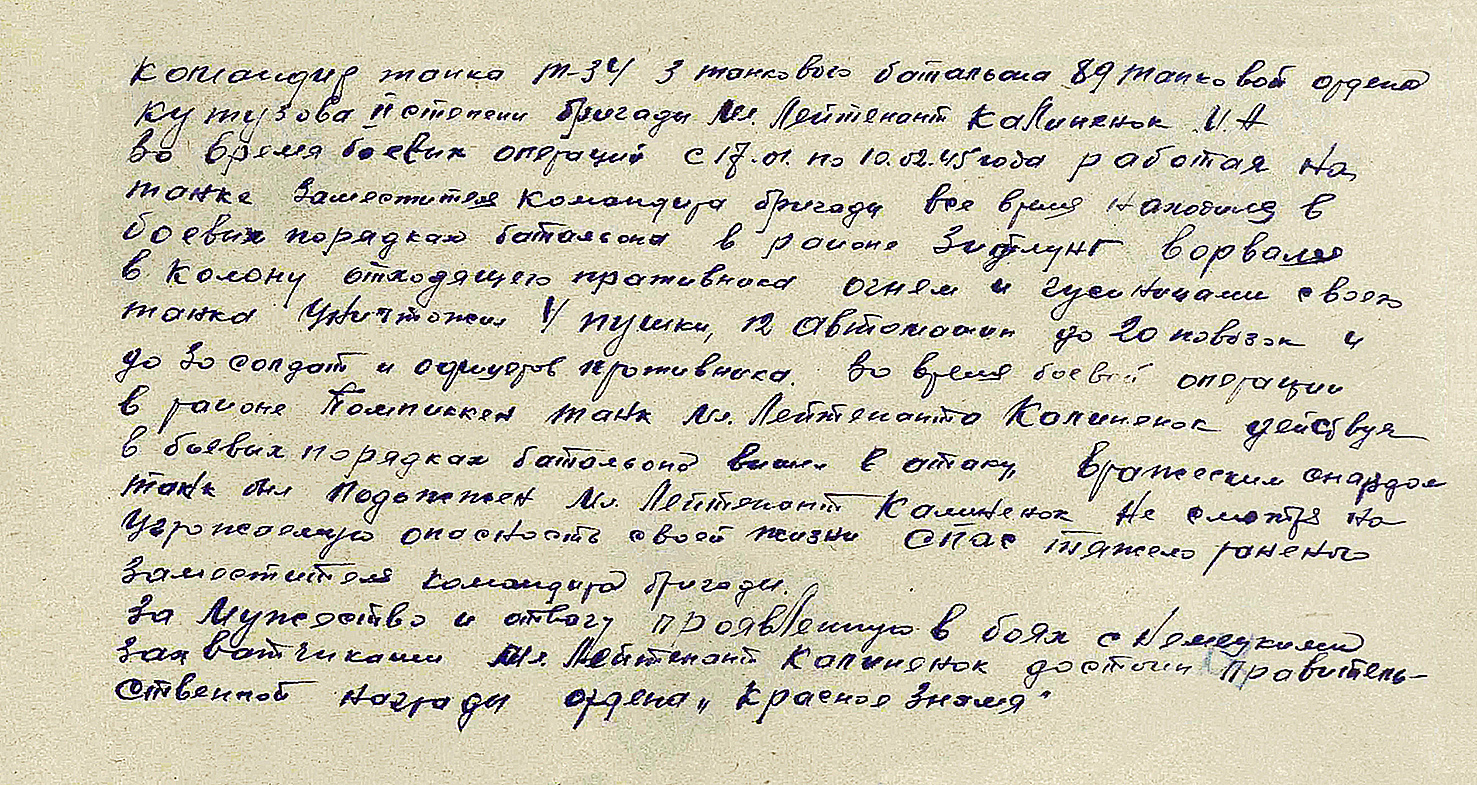 Командир танка Т-34 3 танкового батальона 89 танковой ордена
Кутузова II степени бригады Мл. Лейтенант Калиненок И.А
Во время боевых операций с 17.01. по 10.02.45 года работая на
танке заместителя командира бригады все время находился в
боевых порядках батальона в районе ворвался
в колону отходящего противника огнем и гусиницами своего
танка уничтожил 4 пушки, 12 автомашин до 20 повозок и
до 30 солдат и офицеров противника. Во время боевой операции
в районе Помпиккен танк Мл. Лейтенанта Калиненок действуя
в боевых порядках батальона в атаку, Вражеским снарядом
танк был подожжен Мл. Лейтенант Калиненок не смотря на
угрожаемую опасность своей жизни спас тяжело раненого
заместителя командира бригады.
За мужество и отвагу проявленную в боях с Немецкими
захватчиками Мл. Лейтенант Калиненок достоин правитель-
ственной награды ордена „Красное Знамя"